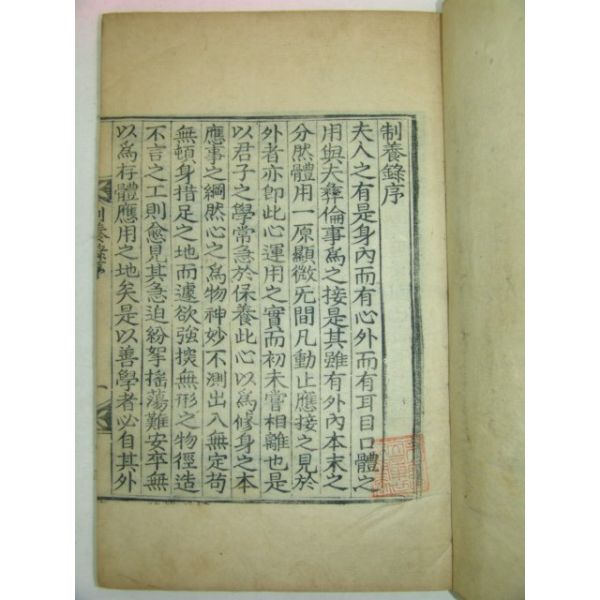 制養錄序
夫人之有是身內而有心外而有耳目口體之
用與夫彛倫事爲之接是其雖有外內本末之
分然體用一原顯微旡間凡動止應接之見於
外者亦卽此心運用之實而初未嘗相離也是
以君子之學常急於保養此心以爲修身之本
應事之綱然心之爲物神妙不測出入無定苟
無頓身措足之地而遽欲強揬無形之物徑造
不言之工則愈見其急迫紛挐摇蕩難安卒無
以爲存體應用之地矣是以善學者必自其外
制養錄序
一